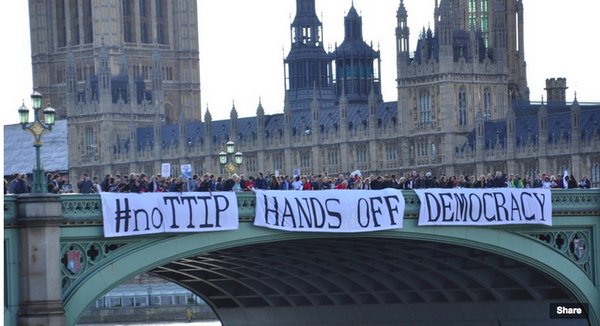 #noTTIP HANDS OFF DEMOCRACY
Share